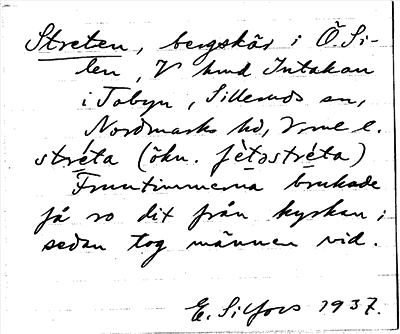 Streten, bergskär i Ö. Si-
len, V hmd Intakan
i Tobyn, Silleruds sn,
Nordmarks hd, Vrml l.
stréta (ökn. jètəstréta)
Fruntimmerna brukade
få ro dit från kyrkan;
sedan tog männen vid.
E. Silfors 1937.